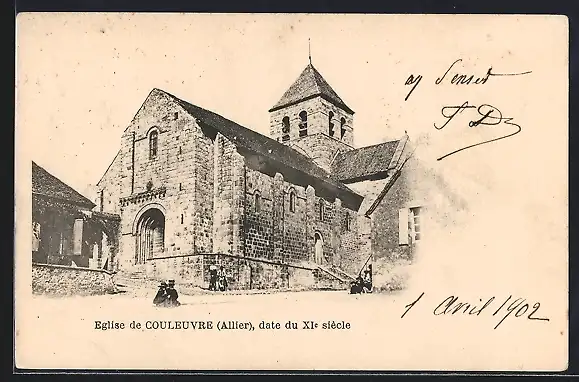 Eglise de COULEUVRE (Allier), date du XIe siècle
1 Avril 1902